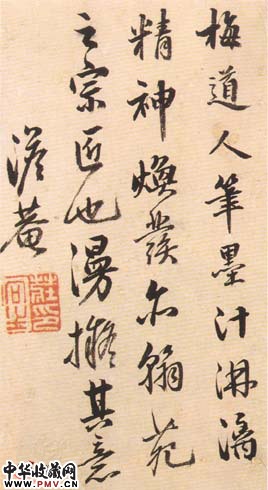 梅道人筆墨汁淋漓
精神煥發亦翰苑
之宗匠也漫擬其意
澹菴
莊印冏生
中华收藏网
WWW.PMV.CN